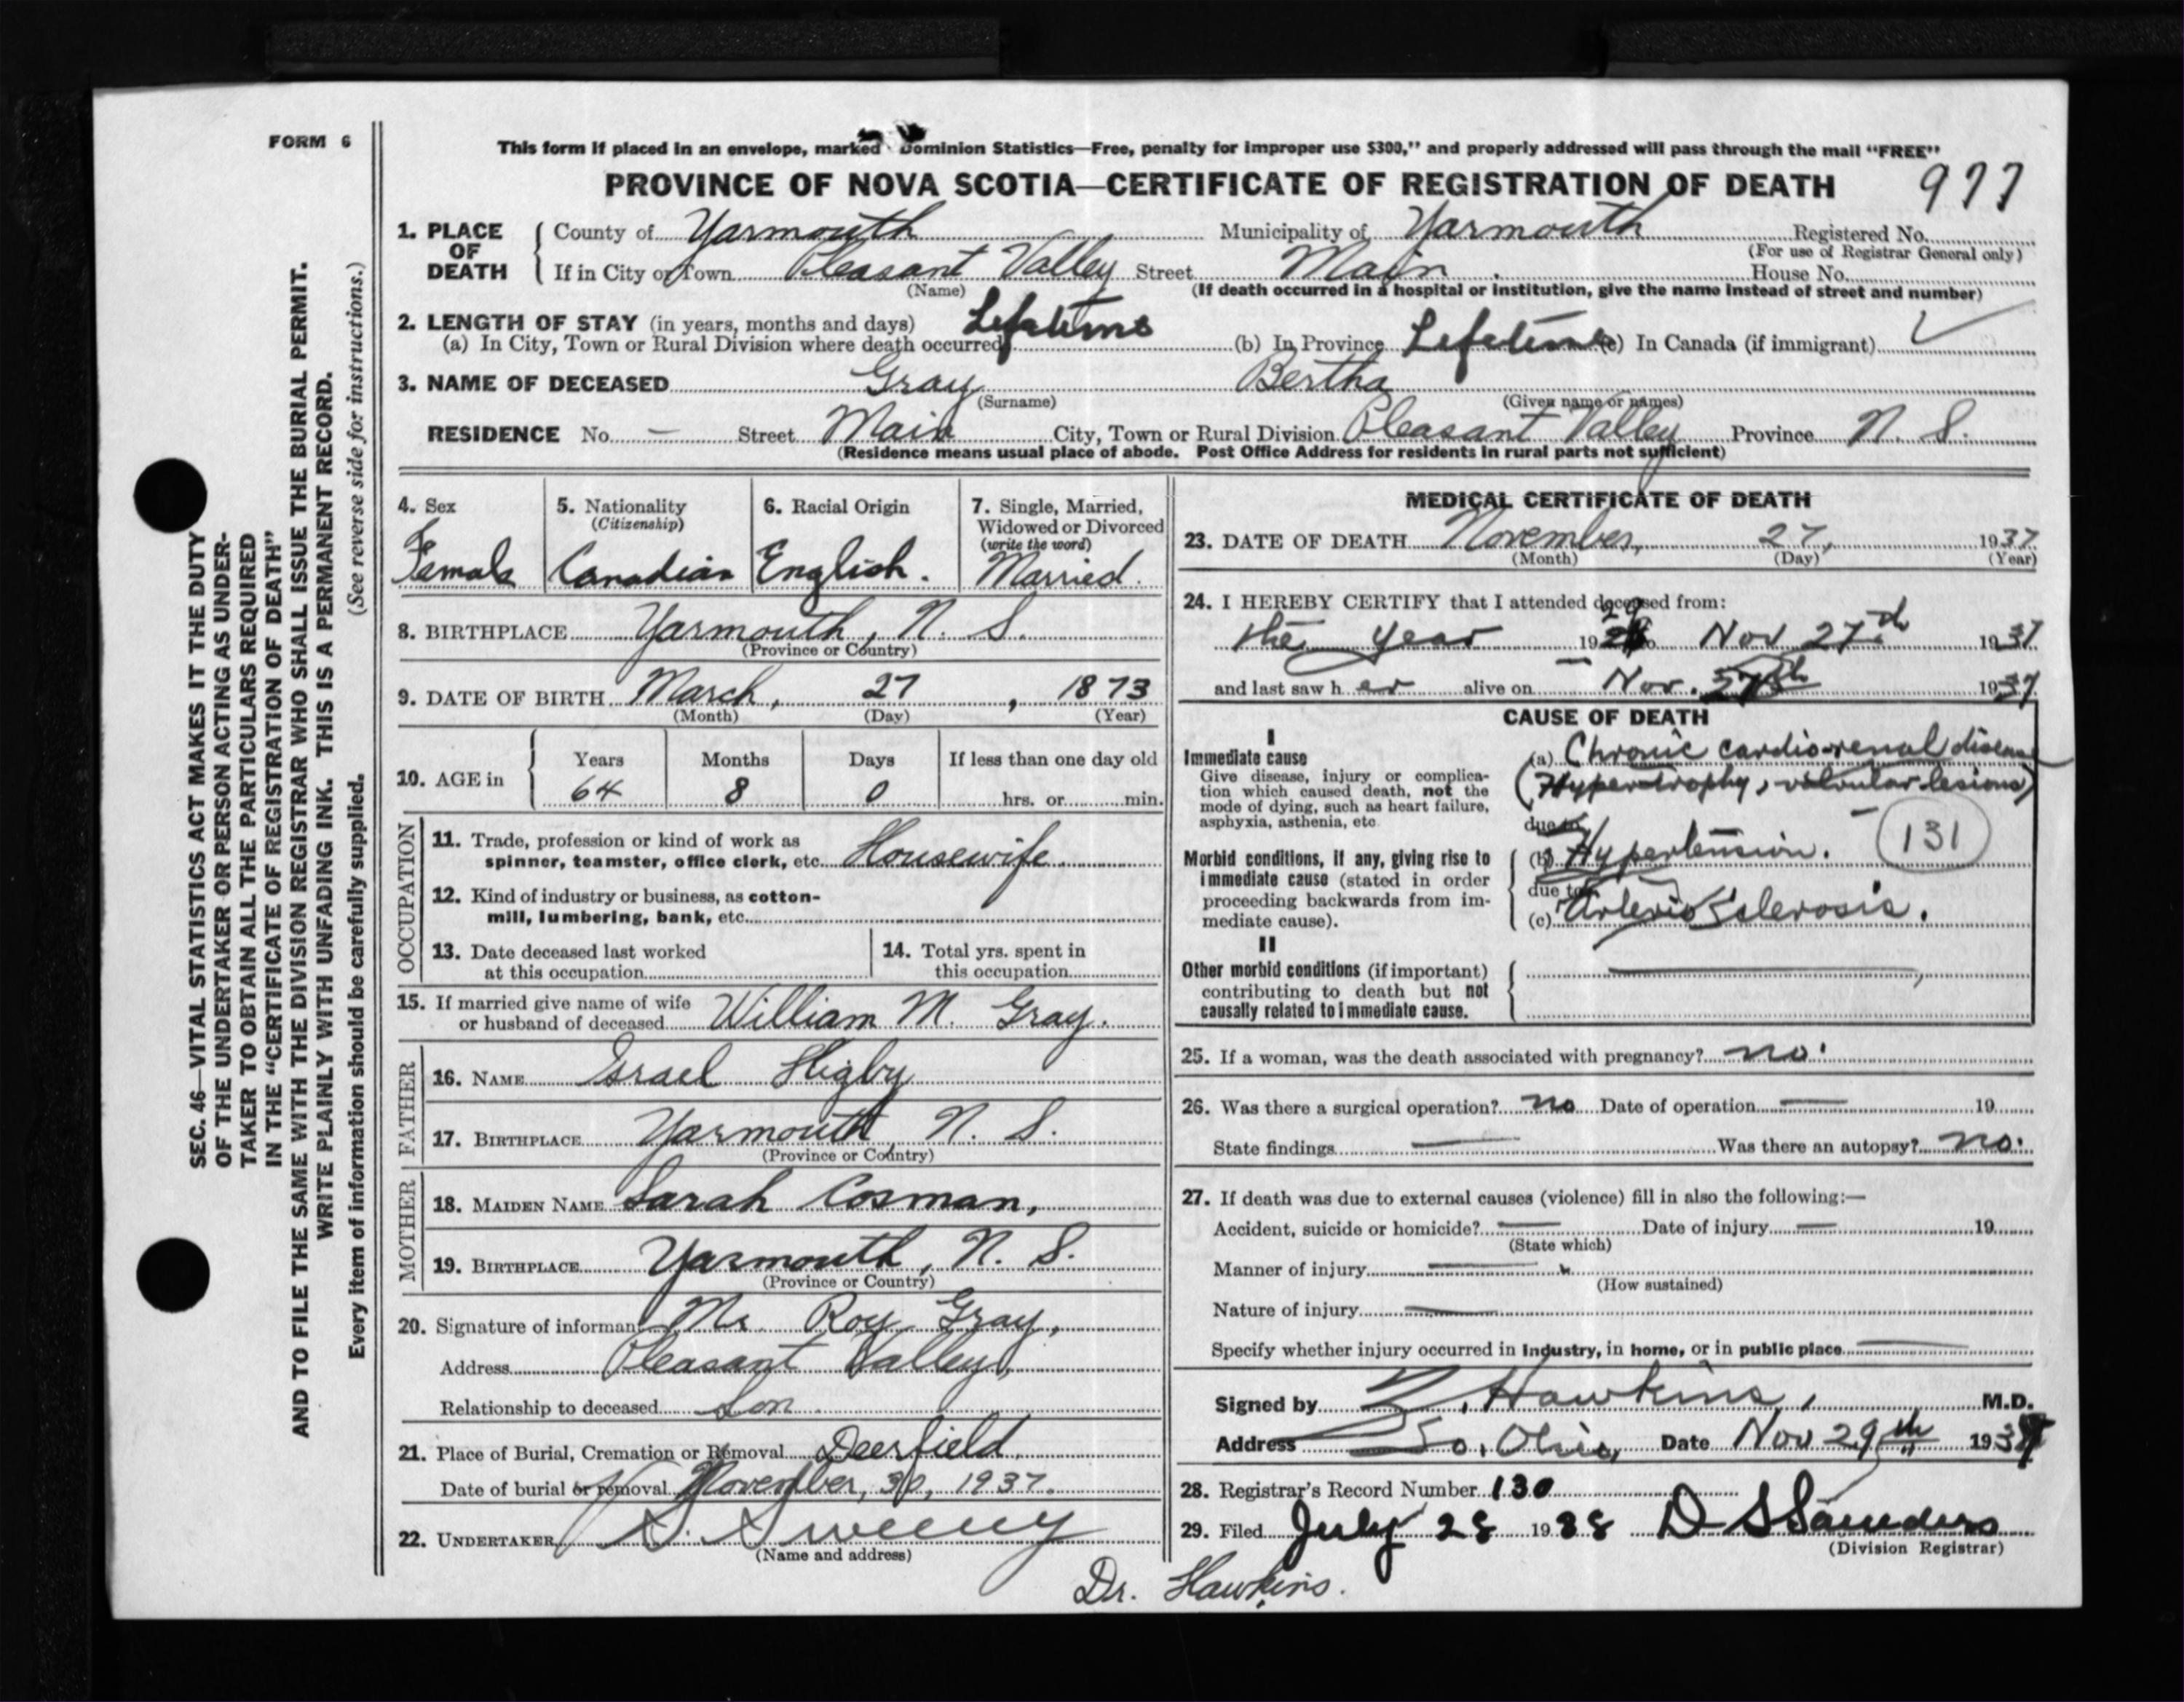 FORM 6
This form if placed in an envelope, marked "Dominion Statistics—Free, penalty for improper use $300," and properly addressed will pass through the mail "FREE"
PROVINCE OF NOVA SCOTIA—CERTIFICATE OF REGISTRATION OF DEATH 977
1. PLACE OF DEATH County of Yarmouth Municipality of Yarmouth Registered No.
(For use of Registrar General only)
If in City or Town Pleasant Valley Street Main House No.
(Name) (If death occurred in a hospital or institution, give the name instead of street and number)
2. LENGTH OF STAY (in years, months and days)
(a) In City, Town or Rural Division where death occurred Lifetime (b) In Province Lifetime (c) In Canada (if immigrant)
3. NAME OF DECEASED Gray Bertha
(Surname) (Given name or names)
RESIDENCE No. — Street Main City, Town or Rural Division Pleasant Valley Province N. S.
(Residence means usual place of abode. Post Office Address for residents in rural parts not sufficient)
4. Sex Female
5. Nationality (Citizenship) Canadian
6. Racial Origin English.
7. Single, Married, Widowed or Divorced (write the word) Married.
8. BIRTHPLACE Yarmouth, N. S.
(Province or Country)
9. DATE OF BIRTH March, 27, 1873
(Month) (Day) (Year)
10. AGE in Years 64 Months 8 Days 0 If less than one day old hrs. or min.
OCCUPATION
11. Trade, profession or kind of work as
spinner, teamster, office clerk, etc. Housewife
12. Kind of industry or business, as cotton-
mill, lumbering, bank, etc.
13. Date deceased last worked
at this occupation
14. Total yrs. spent in
this occupation
15. If married give name of wife
or husband of deceased William M. Gray.
FATHER
16. NAME Israel Higby
17. BIRTHPLACE Yarmouth, N. S.
(Province or Country)
MOTHER
18. MAIDEN NAME Sarah Cosman,
19. BIRTHPLACE Yarmouth, N. S.
(Province or Country)
20. Signature of informant Mr. Roy Gray,
Address Pleasant Valley,
Relationship to deceased Son
21. Place of Burial, Cremation or Removal Deerfield
Date of burial or removal November, 30, 1937.
22. UNDERTAKER Sweeny
(Name and address)
MEDICAL CERTIFICATE OF DEATH
23. DATE OF DEATH November, 27, 1937
(Month) (Day) (Year)
24. I HEREBY CERTIFY that I attended deceased from:
the year 1929 to Nov 27th 1937
and last saw her alive on Nov. 27th 1937
CAUSE OF DEATH
I
Immediate cause
Give disease, injury or complica-
tion which caused death, not the
mode of dying, such as heart failure,
asphyxia, asthenia, etc.
(a) Chronic cardio-renal disease
(Hypertrophy, valvular lesions)
due to
Morbid conditions, if any, giving rise to
immediate cause (stated in order
proceeding backwards from im-
mediate cause).
(b) Hypertension. 131
due to
(c) Arterio Sclerosis.
II
Other morbid conditions (if important)
contributing to death but not
causally related to immediate cause.
25. If a woman, was the death associated with pregnancy? no.
26. Was there a surgical operation? no Date of operation — 19
State findings — Was there an autopsy? no.
27. If death was due to external causes (violence) fill in also the following:—
Accident, suicide or homicide? — Date of injury — 19
(State which)
Manner of injury —
(How sustained)
Nature of injury —
Specify whether injury occurred in industry, in home, or in public place —
Signed by Hawkins, M.D.
Address So. Ohio, Date Nov 29th 1937
28. Registrar's Record Number 130
29. Filed July 28 1938 D S Saunders
(Division Registrar)
Dr. Hawkins.
SEC. 46—VITAL STATISTICS ACT MAKES IT THE DUTY
OF THE UNDERTAKER OR PERSON ACTING AS UNDER-
TAKER TO OBTAIN ALL THE PARTICULARS REQUIRED
IN THE "CERTIFICATE OF REGISTRATION OF DEATH"
AND TO FILE THE SAME WITH THE DIVISION REGISTRAR WHO SHALL ISSUE THE BURIAL PERMIT.
WRITE PLAINLY WITH UNFADING INK. THIS IS A PERMANENT RECORD.
Every item of information should be carefully supplied. (See reverse side for instructions.)